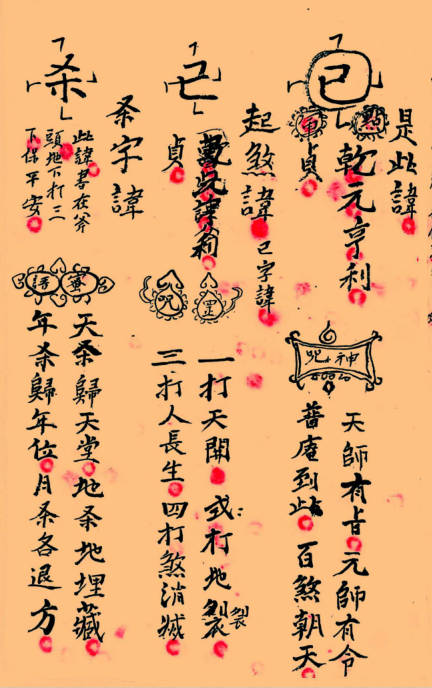 是此諱
已
點 乾元亨利
貞
起煞諱 已字諱
己
貞
杀字諱
杀
此諱書在斧
頭地下打三
下保平安
神咒
天師有旨元師有令
普庵到此百煞朝天
罡咒
一打天開 或打地裂 裂
三打人長生四打煞消滅
密語
天杀歸天堂地杀地埋藏
年杀歸年位月杀各退方